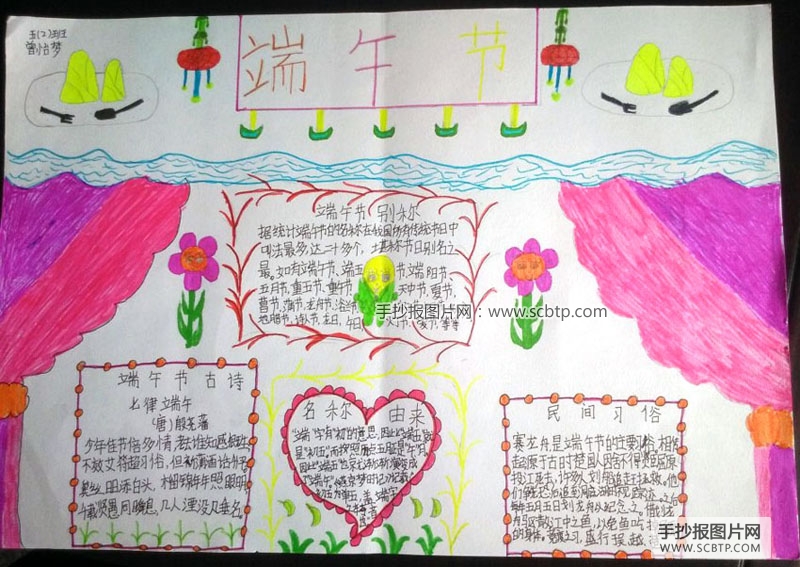 五(2)班
曾怡梦
端午节
端午节别称
据统计端午节的名称在我国所有传统节日中
叫法最多,达二十多个,堪称节日别名之
最。如有端午节、端五节、端阳节、
五月节、重五节、重午节、天中节、夏节、
菖节、蒲节、龙舟节、浴
地腊节、诗人节、龙日、午日
手抄报图片网:www.scbtp.com
端午节古诗
七律端午
(唐)殷尧藩
少年佳节倍多情,老去谁知感慨生
不效艾符趋习俗,但祈蒲酒话升平
鬓丝日添白头,榴锦年年照眼明
千载贤愚同瞬息,几人湮没几垂名
名称由来
"端午"有"初"的意思,因此"端五"就
是"初五"
民间习俗
赛龙舟是端午节的主要习俗,相传
起源于古时楚国人因舍不得贤臣屈原
投江死去,许多人划船追赶拯救。他
们
每年五月五日划龙舟以纪念之。借划龙
舟驱散江中之鱼,以免鱼吃
的身体。竞渡之习,盛行
手抄报图片网
WWW.SCBTP.COM